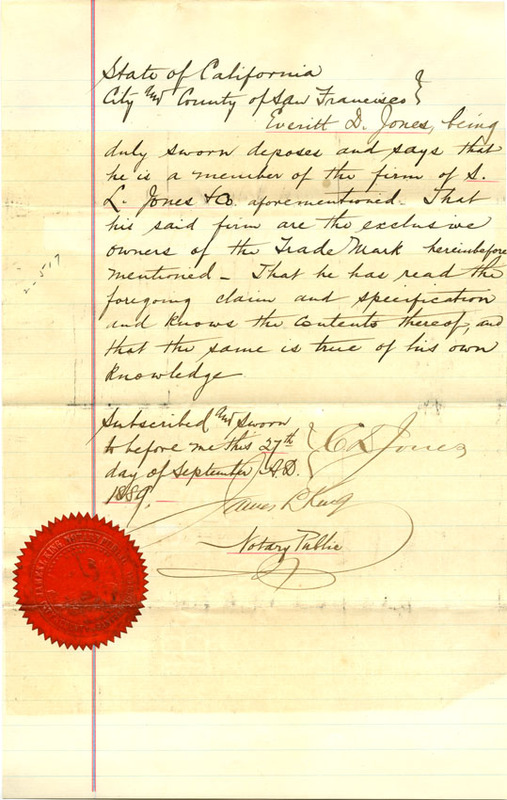 State of California
City and County of San Francisco }
Everitt D. Jones, being
duly sworn deposes and says that
he is a member of the firm of S.
L. Jones & Co. aforementioned - That
his said firm are the exclusive
owners of the Trade Mark hereinbefore
mentioned - That he has read the
foregoing claim and specification
and knows the contents thereof, and
that the same is true of his own
knowledge
2-517
Subscribed and sworn
to before me this 27th
day of September A.D.
1889.
E D Jones
James L. King
Notary Public
NOTARY PUBLIC